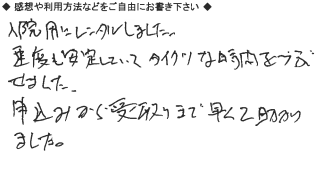 ◆ 感想や利用方法などをご自由にお書き下さい ◆
入院用にレンタルしました。
速度も安定していてタイクツな時間をつぶ
せました。
申込みから受取りまで早くて助かり
ました。